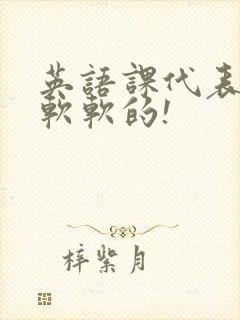 英語課代表
軟軟的!
梓紫月